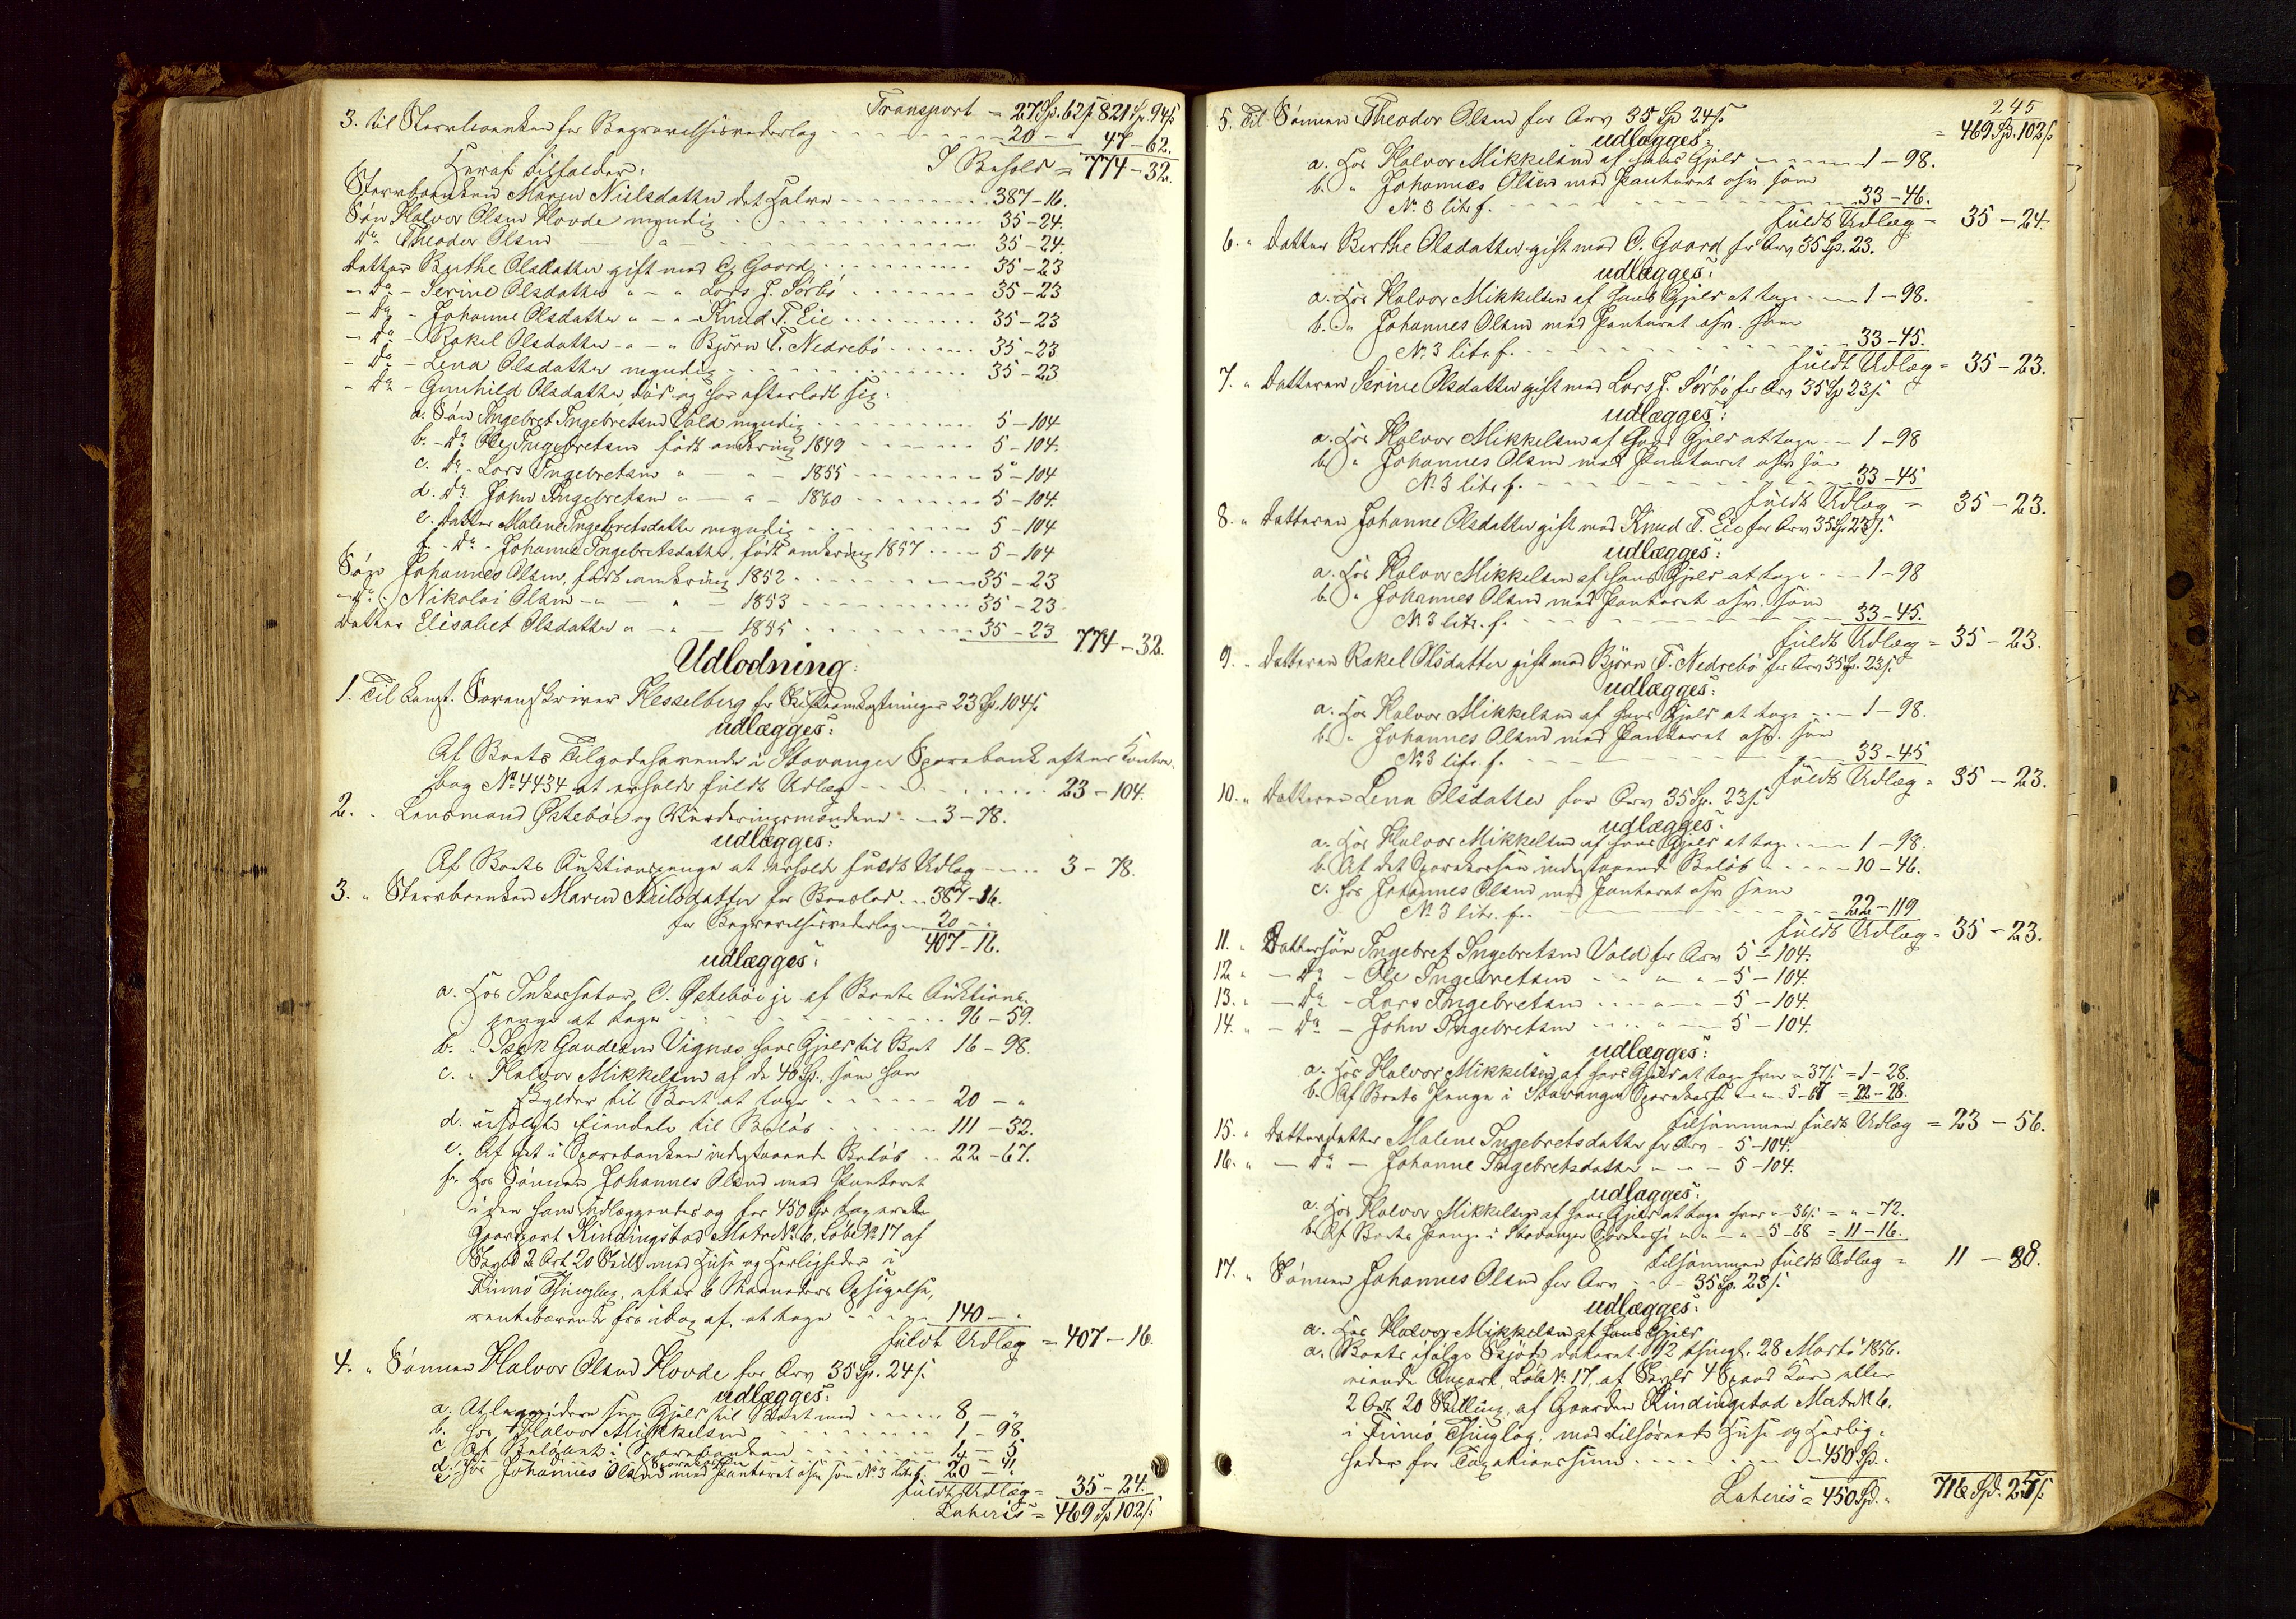 Transport = 27 Sp. 62 ſ. 821 Sp. 94 ſ.
3. til Stervboenken for Begravelsesvederlag - - - 20 - „ 47 - 62.
I Behold = 774 - 32.
Heraf tilfalder:
Stervboenken Maren Nielsdatter det Halve - - - 387 - 16.
Søn Halvor Olsen Hovde myndig - - - 35 - 24.
Do Theodor Olsen — „ — 35 - 24.
Datter Berthe Olsdatter gift med C. Gaard - - - 35 - 23
- Do - Serine Olsdatter „ - „ Lars J. Sørbø - - - 35 - 23
- Do - Johanne Olsdatter „ - „ Knud T. Eie - - - 35 - 23
- Do - Rakel Olsdatter „ - „ Bjørn T. Nedrebø - - - 35 - 23
- Do - Lena Olsdatter myndig - - - 35 - 23
- Do - Gunhild Olsdatter, død og har efterladt sig:
a. Søn Ingebret Ingebretsen Vold myndig - - - 5 - 104
b. - Do Ole Ingebretsen født omkring 1849 - - - 5 - 104.
c. Do - Lars Ingebretsen „ — „ - 1855 - - - 5 - 104
d. Do. John Ingebretsen „ — „ - 1860 - - - 5 - 104.
e. Datter Malene Ingebretsdatter myndig - - - 5 - 104
f. - Do - Johanne Ingebretsdatter, født omkring 1857 - - - 5 - 104
Søn Johannes Olsen, født omkring 1852 - - - 35 - 23
- Do - Nikolai Olsen - „ — „ — 1853 - - - 35 - 23
Datter Elisabet Olsdatter „ — „ — 1855 - - - 35 - 23 774 - 32.
Udlodning:
1. Til Const. Sorenskriver Hesselberg for Skifteomkostninger 23 Sp. 104 ſ.
udlægges:
Af Boets Tilgodehavende i Stavanger Sparebank efter Contra-
bog No 4434 at erholde fuldt Udlæg - - - 23 - 104.
2. „ Lensmand Østebøe og Vurderingsmændene - - 3 - 78.
udlægges:
Af Boets Auktionspenge at erholde fuldt Udlæg - - - 3 - 78.
3. „ Stervboenken Maren Nielsdatter for Boeslod - - 387 - 16.
for Begravelsesvederlag - - 20 - „
407 - 16.
udlægges:
a. Hos Inkassator C. Østebøe jr af Boets Auktions-
penge at tage - - - 96 - 59.
b. „ Isak Gaudesen Vignæs hans Gjeld til Boet 16 - 98.
c. „ Halvor Mikkelsen af de 40 Sp., som han
skylder til Boet at tage - - - 20 - „
d. usolgte Eiendele til Beløb - - - 111 - 32.
e. Af det i Sparebanken indestaaende Beløb - - 22 - 67.
f. Hos Sønnen Johannes Olsen med Panteret
i den ham udlæggendes og for 450 Sp taxerede
Gaardpart Rindingstad Matr No 6, Løbe No 17 af
Skyld 2 Ort 20 Skill med Huse og Herligheder i
Finnø Thinglag, efter 6 Maaneders Opsigelse,
rentebærende fra idag af, at tage - - - 140 - „
fuldt Udlæg = 407 - 16.
4. „ Sønnen Halvor Olsen Hovde for Arv 35 Sp. 24 ſ.
udlægges:
a. At liqvidere sin Gjeld til Boet med - - - 8 - „
b. hos Halvor Mikkelsen - - - 1 - 98
c. Af Beløbet i Sparebanken - - - 4 - 5
d. hos Johannes Olsen med Panteret osv som No 3 litr f. 20 - 41.
fuldt Udlæg = 35 - 24.
Lateris = 469 Sp 102 ſ.
245
5. Til Sønnen Theodor Olsen for Arv 35 Sp 24 ſ. = 469 Sp. 102 ſ.
udlægges:
a. Hos Halvor Mikkelsen af hans Gjeld - - - 1 - 98.
b. „ Johannes Olsen med Panteret osv som
No 3 litr f. - - - 33 - 46.
fuldt Udlæg - 35 - 24.
6. „ Datter Berthe Olsdatter gift med C. Gaard for Arv 35 Sp. 23.
udlægges:
a. Hos Halvor Mikkelsen af hans Gjeld at tage - - 1 - 98.
b. „ Johannes Olsen med Panteret osv. som
No 3 litr f. - - - 33 - 45.
fuldt Udlæg = 35 - 23.
7. „ Datteren Serine Olsdatter gift med Lars J. Sørbø for Arv 35 Sp 23 ſ.
udlægges:
a. Hos Halvor Mikkelsen af hans Gjeld at tage - - 1 - 98
b. „ Johannes Olsen med Panteret osv som
No 3 litr f. - - - 33 - 45
fuldt Udlæg = 35 - 23.
8. „ Datteren Johanne Olsdatter gift med Knud T. Eie for Arv 35 Sp 23 ſ.
udlægges:
a. Hos Halvor Mikkelsen af hans Gjeld at tage - - 1 - 98
b. „ Johannes Olsen med Panteret osv. som
No 3 litr. f. - - - 33 - 45.
fuldt Udlæg = 35 - 23.
9. „ Datteren Rakel Olsdatter gift med Bjørn T. Nedrebø for Arv 35 Sp. 23 ſ.
udlægges:
a. Hos Halvor Mikkelsen af hans Gjeld at tage - - 1 - 98.
b. „ Johannes Olsen med Panteret osv. som
No 3 litr. f. - - - 33 - 45
fuldt Udlæg = 35 - 23.
10. „ Datteren Lena Olsdatter for Arv 35 Sp. 23 ſ.
udlægges:
a. Hos Halvor Mikkelsen af hans Gjeld at tage - - 1 - 98.
b. Af det Sparekassen indestaaende Beløb - - - 10 - 46.
c. hos Johannes Olsen med Panteret osv som
No 3 litr. f. - - - 22 - 119
fuldt Udlæg = 35 - 23.
11. „ Dattersøn Ingebret Ingebretsen Vold for Arv 5 - 104.
12 „ — Do - Ole Ingebretsen - - „ - - 5 - 104.
13. „ — Do - Lars Ingebretsen - - „ - - 5 - 104.
14. „ — Do — John Ingebretsen - - „ - - 5 - 104.
udlægges:
a. Hos Halvor Mikkelsen af hans Gjeld at tage hver „ 37 ſ. = 1 - 28.
b. Af Boets Penge i Stavanger Sparekasse - „ - 5 - 67 = 22 - 28.
tilsammen fuldt Udlæg = 23 - 56.
15. „ Datterdatter Malene Ingebretsdatter for Arv - 5 - 104.
16. „ — Do — Johanne Ingebretsdatter - „ - - 5 - 104.
udlægges:
a. Hos Halvor Mikkelsen af hans Gjeld at tage hver „ - 36 ſ. = „ - 72.
b. Af Boets Penge i Stavanger Sparekasse - „ - 5 - 68 = 11 - 16.
tilsammen fuldt Udlæg = 11 - 88.
17. „ Sønnen Johannes Olsen for Arv - - 35 Sp. 23 ſ.
udlægges:
a. Hos Halvor Mikkelsen af hans Gjeld
a. Boets ifølge Skjøde dateret 12 thingl. 28 Marts 1856.
eiende Anpart, Løbe No 17, af Skyld 4 Spand Korn eller
2 Ort 20 Skilling, af Gaarden Rindingstad Matr No 6.
i Finnø Thinglag, med tilhørende Huse og Herlig-
heder for Taxationssum - - - 450 Sp.
Lateris = 450 Sp. „ 716 Sp. 25 ſ.